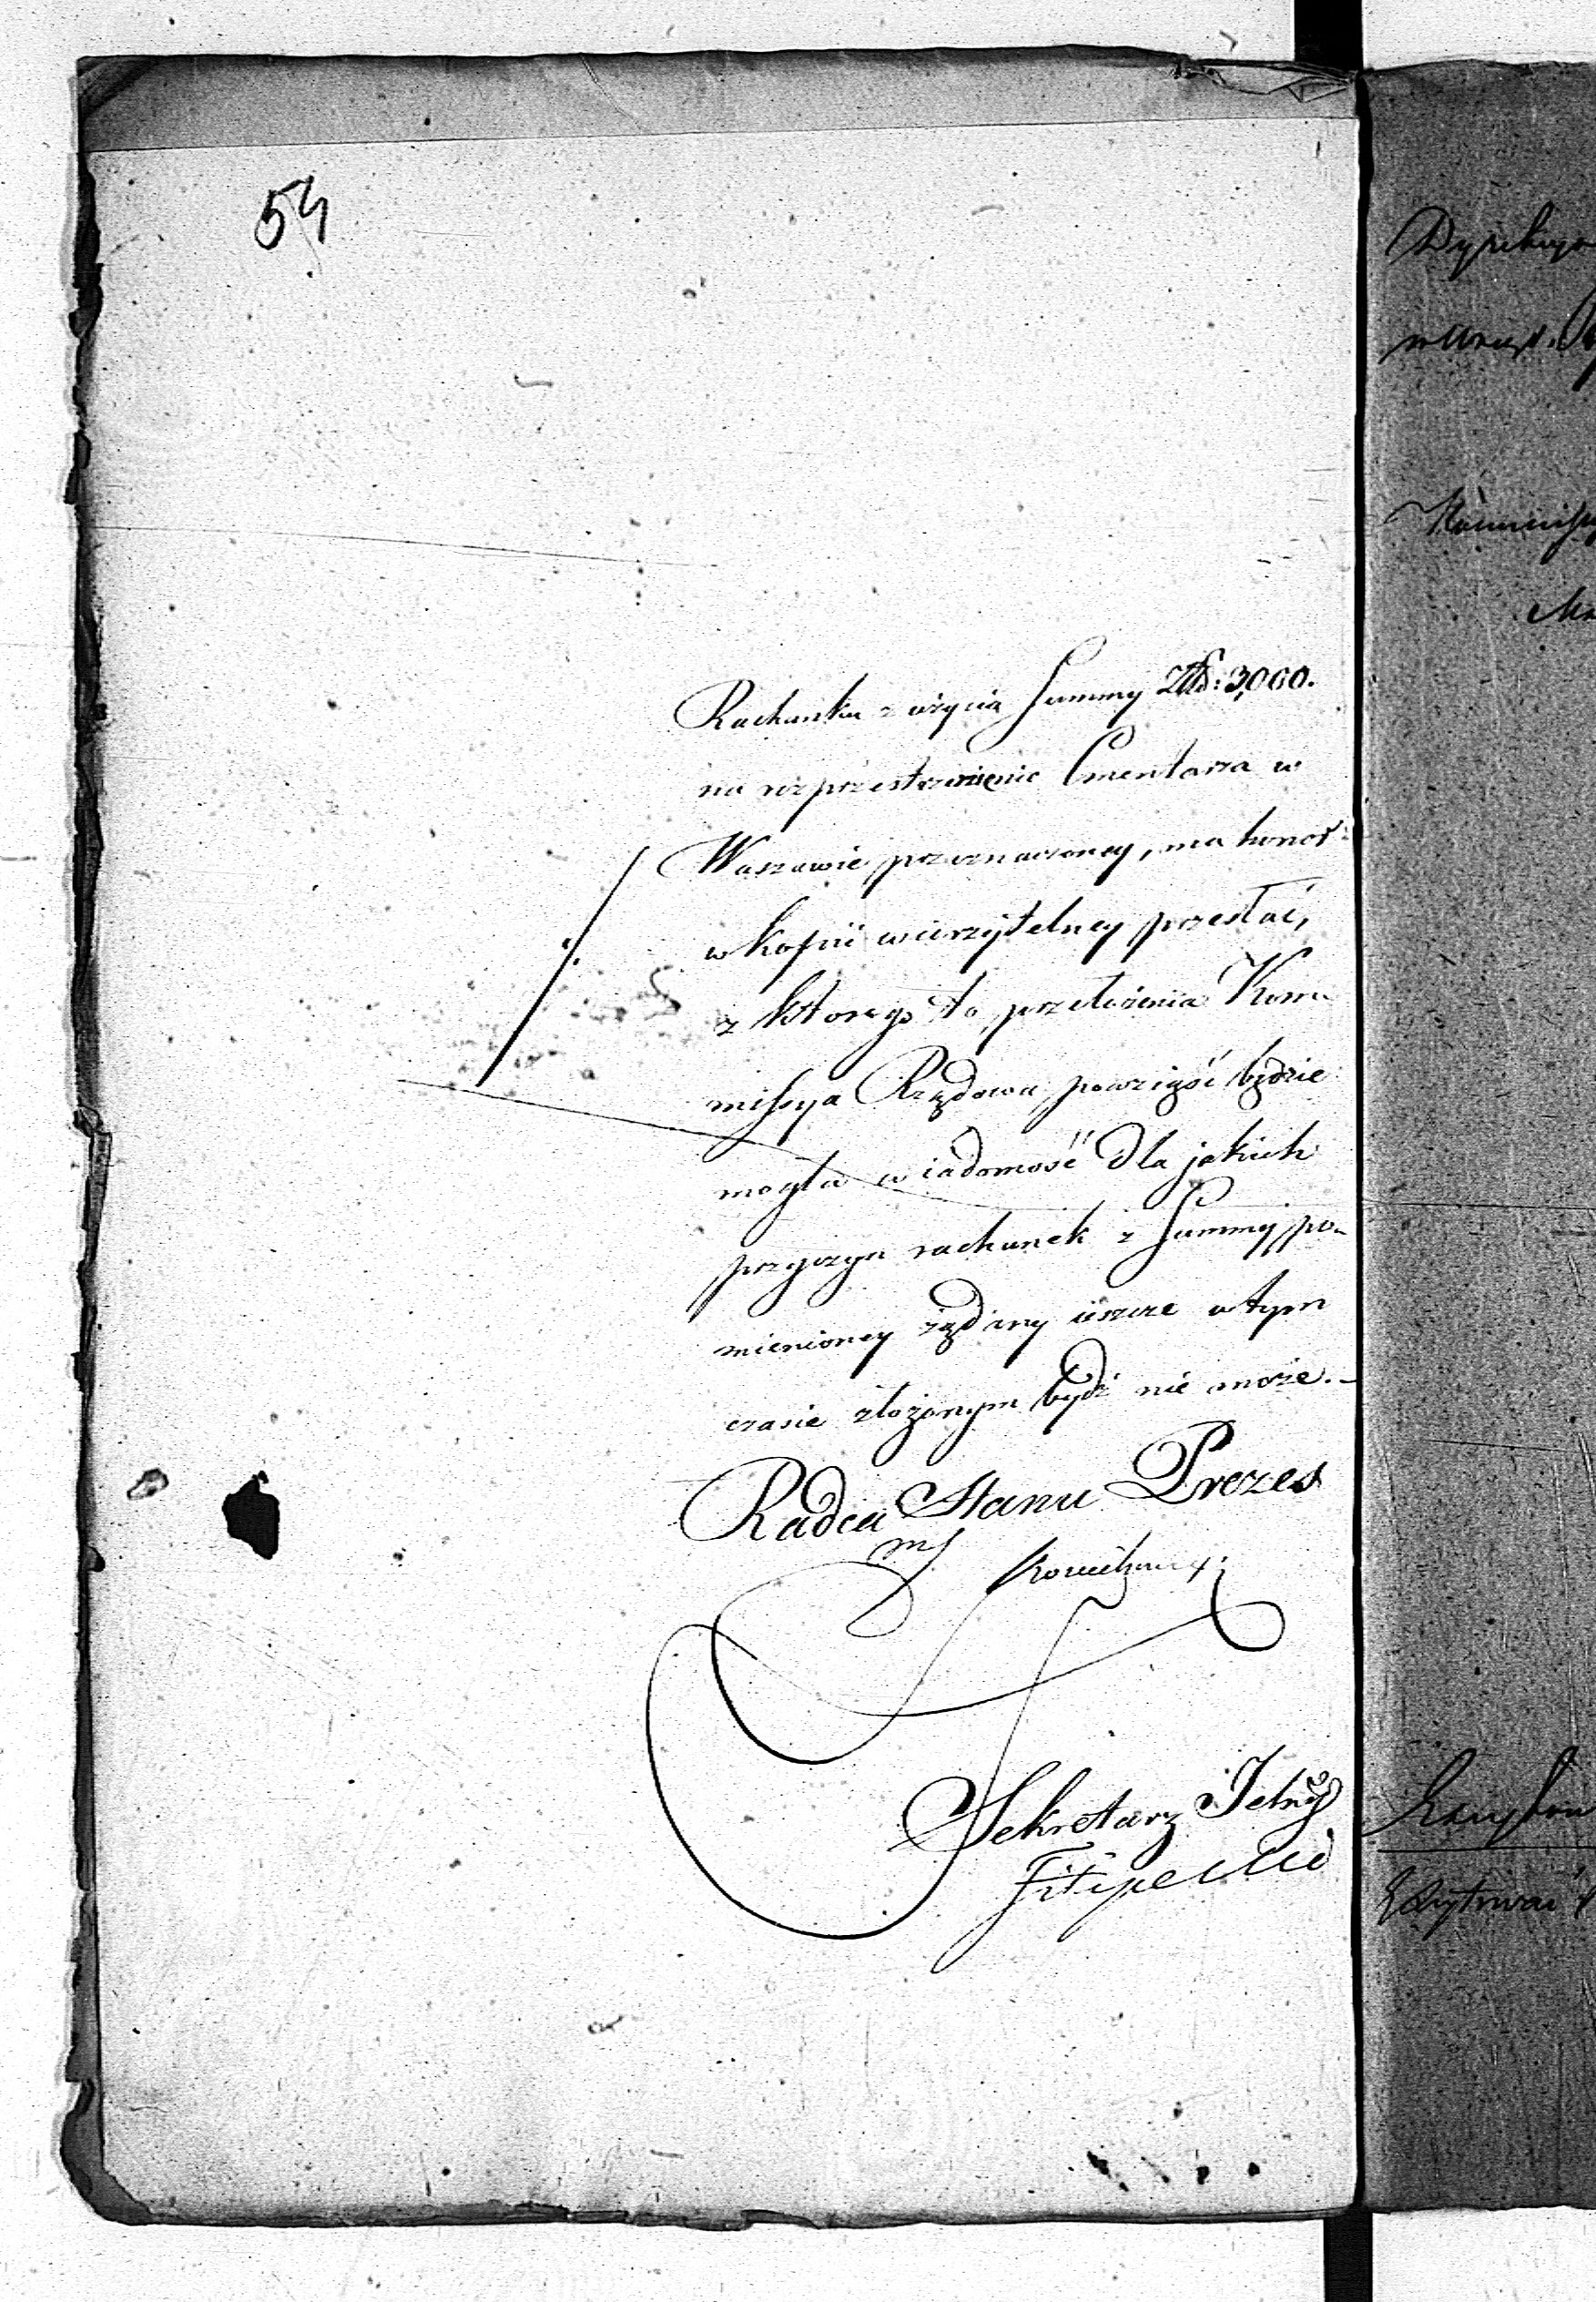 54
Rachunku z użycia Summy Złp: 3,000.
na rozprzestrzenienie Cmentarza w
Warszawie przeznaczoney, ma honor
w kopii wierzytelney przesłać,
z którego to przełożenia Kom-
missya Rządowa powziąść będzie
mogła wiadomość dla jakich
przyczyn rachunek z Summy po-
mienioney żądany ieszcze w tym
czasie złożonym bydź nie może.-
Radca Stanu Prezes
Sekretarz Jetny
Filipecki